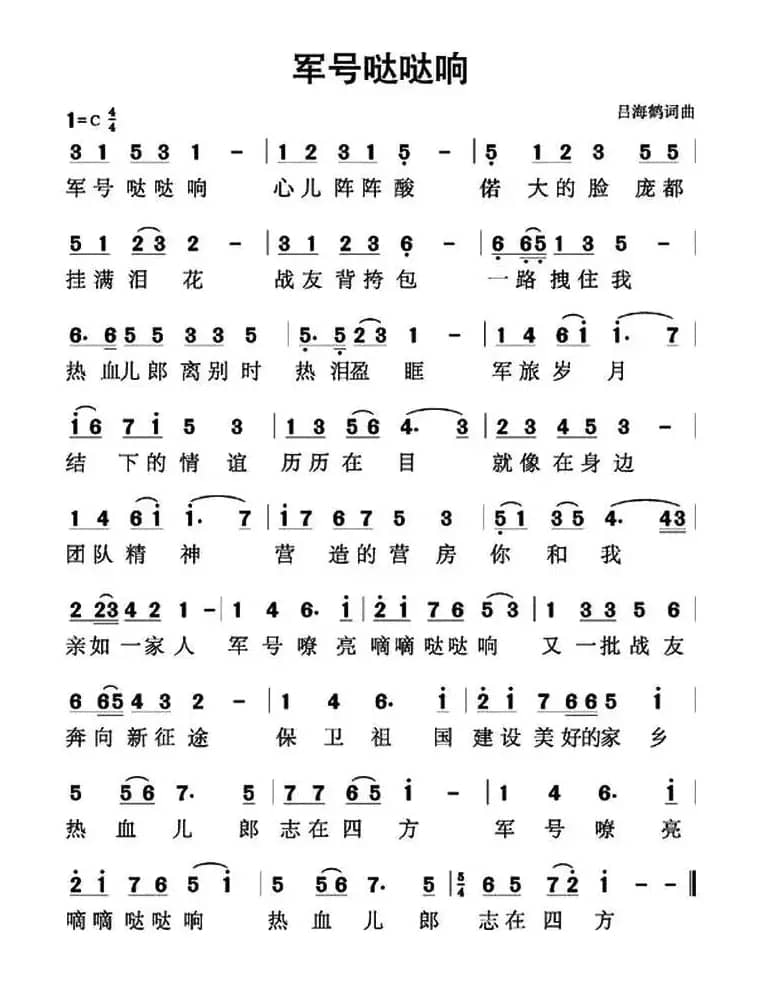 军号哒哒响
1=C 4/4 吕海鹤词曲
3 1 5 3 1 - | 1 2 3 1 5̣ - | 5̣ 1 2 3 5 5 |
军号 哒哒 响 心儿 阵阵 酸 偌 大的 脸 庞都
5 1 2 3 2 - | 3 1 2 3 6̣ - | 6̣ 6̣5̣ 1 3 5 - |
挂满 泪 花 战友 背挎 包 一路 拽住 我
6. 6 5 5 3 3 5 | 5̣. 5̣ 2 3 1 - | 1 4 6 i i. 7 |
热 血儿郎 离别 时 热 泪盈 眶 军旅 岁 月
i 6 7 i 5 3 | 1 3 5 6 4. 3 | 2 3 4 5 3 - |
结 下的 情 谊 历历 在 目 就像 在身 边
1 4 6 i i. 7 | i 7 6 7 5 3 | 5̣ 1 3 5 4. 4 3 |
团队 精 神 营 造的 营 房 你 和 我
2 2 3 4 2 1 - | 1 4 6. i | 2̇ i 7 6 5 3 | 1 3 3 5 6 |
亲如 一家 人 军 号 嘹 亮 嘀嘀 哒哒 响 又 一批 战 友
6 6 5 4 3 2 - | 1 4 6. i | 2̇ i 7 6 6 5 i |
奔向 新征 途 保 卫 祖 国 建设 美好的 家 乡
5 5 6 7. 5 | 7 7 6 5 i - | 1 4 6. i |
热 血 儿 郎 志在 四 方 军 号 嘹 亮
2̇ i 7 6 5 i | 5 5 6 7. 5 | 5/4 6 5 7 2̇ i - - ‖
嘀嘀 哒哒 响 热 血 儿 郎 志在 四 方